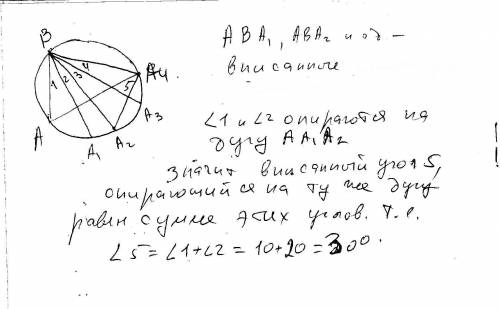 B
1 2 3 4
A4.
5
A3
A
A1
A2
ABA1, ABA2 и
вписанные
∠1 и ∠2 опираются на
дугу AA1A2
значит вписанный угол 5,
опирающийся на ту же дугу
равен сумме этих углов. т.е.
∠5 = ∠1+∠2 = 10+20 = 30°.